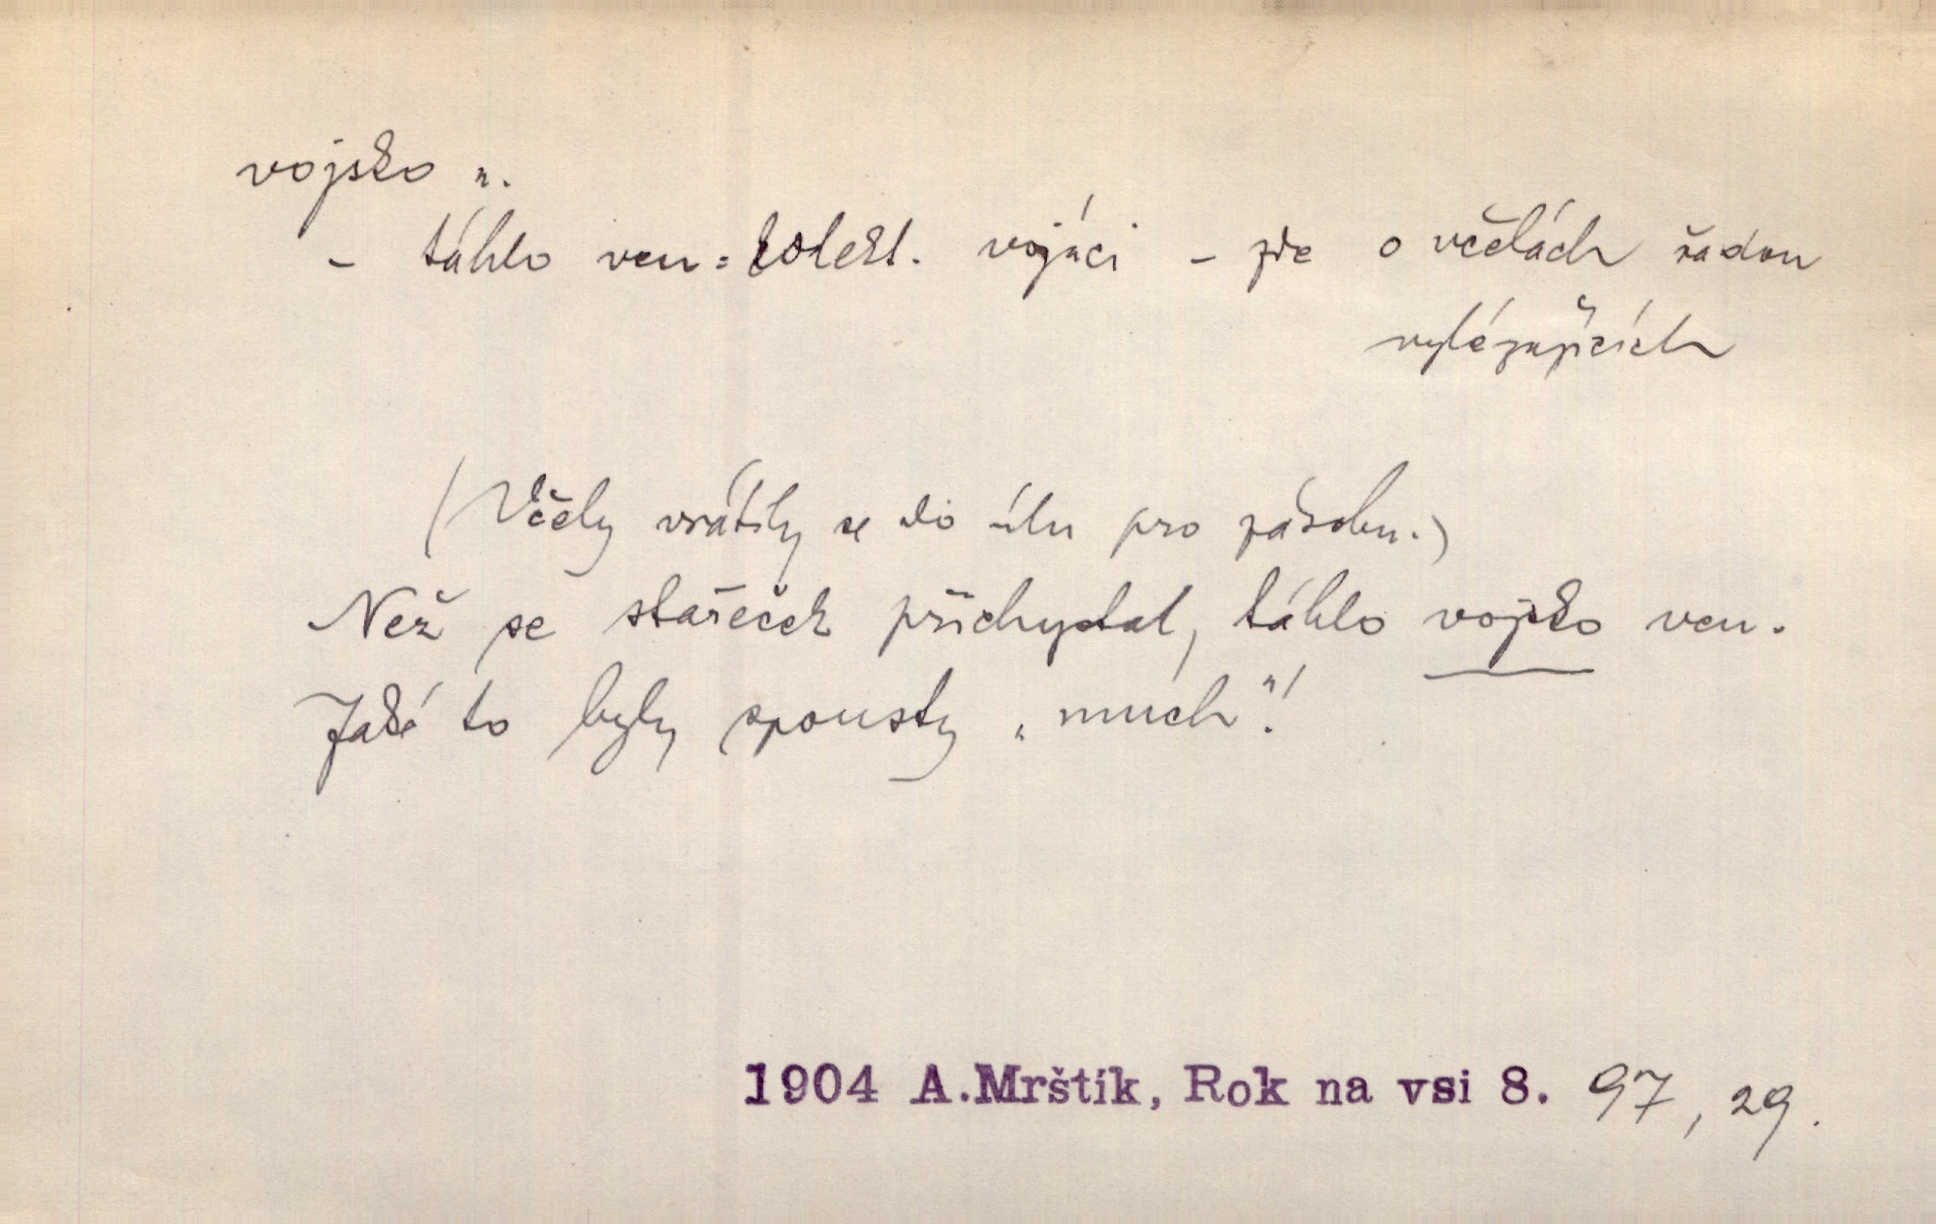 vojsko n.
– táhlo ven = kolekt. vojáci – zde o včelách řadou
vylézajících
(Včely vrátily se do úlu pro zásobu.)
Než se stařeček přichystal, táhlo vojsko ven.
Jaké to byly spousty „much“!
1904 A.Mrštík, Rok na vsi 8. 97, 29.